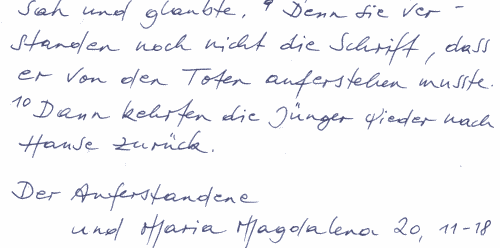 sah und glaubte. 9 Denn sie ver-
standen noch nicht die Schrift, dass
er von den Toten auferstehen musste.
10 Dann kehrten die Jünger wieder nach
Hause zurück.
Der Auferstandene
und Maria Magdalena 20, 11-18